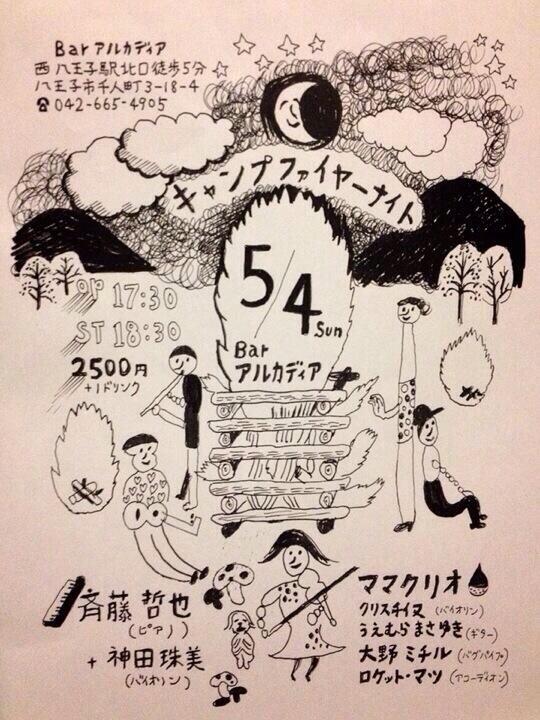 Bar アルカディア
西八王子駅北口徒歩5分
八王子市千人町3-18-4
☎042-665-4905
キャンプファイヤーナイト
5/4 Sun
Bar
アルカディア
OP 17:30
ST 18:30
2500円
+1ドリンク
斉藤 哲也
(ピアノ)
+ 神田珠美
(バイオリン)
ママクリオ
クリスチイヌ (バイオリン)
うえむらまさゆき (ギター)
大野 ミチル (バグパイプ)
ロケット・マツ (アコーディオン)